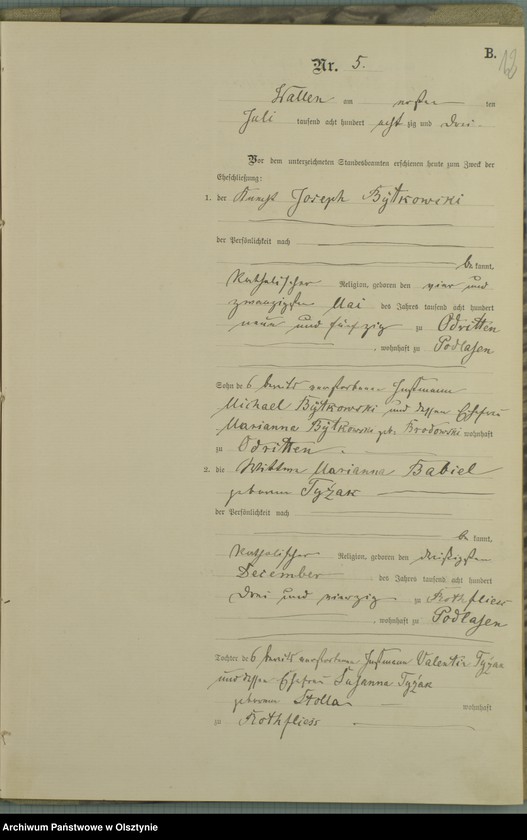 B.
12
Nr. 5.
Wallen am ersten ten
Juli tausend acht hundert acht zig und drei
Vor dem unterzeichneten Standesbeamten erschienen heute zum Zweck der
Eheschließung:
1. der Knecht Joseph Bÿtkowski
der Persönlichkeit nach
be kannt,
katholischer Religion, geboren den vier und
zwanzigsten Mai des Jahres tausend acht hundert
neun und fünfzig zu Odritten
, wohnhaft zu Podlasen
Sohn des bereits verstorbenen
Michael Bÿtkowski und dessen Ehefrau
Marianna Bÿtkowski geb. Brodowski wohnhaft
zu Odritten
2. die Wittwe Marianna Babiel
geborene Tyżak
der Persönlichkeit nach
be kannt,
katholischer Religion, geboren den dreißigsten
December des Jahres tausend acht hundert
drei und vierzig zu Rothfliess
, wohnhaft zu Podlasen
Tochter des bereits verstorbenen Valentin Tyżak
und dessen Ehefrau Susanna Tyżak
geborene Stolla wohnhaft
zu Rothfliess
Archiwum Państwowe w Olsztynie